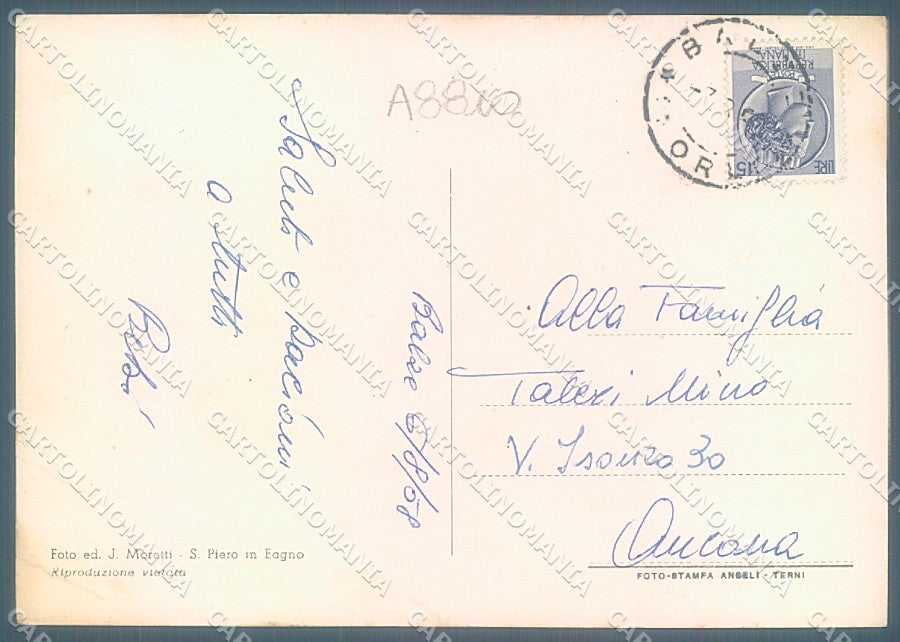 A8800
Saluti e bacioni
a tutti
Balze 8/8/68
Alla Famiglia
Taleri Mino
V. Isonzo 30
Ancona
Foto ed. J. Moretti - S. Piero in Bagno
Riproduzione vietata
FOTO-STAMPA ANGELI - TERNI
POSTE
REPUBBLICA
ITALIANA
LIRE 15
CARTOLINOMANIA